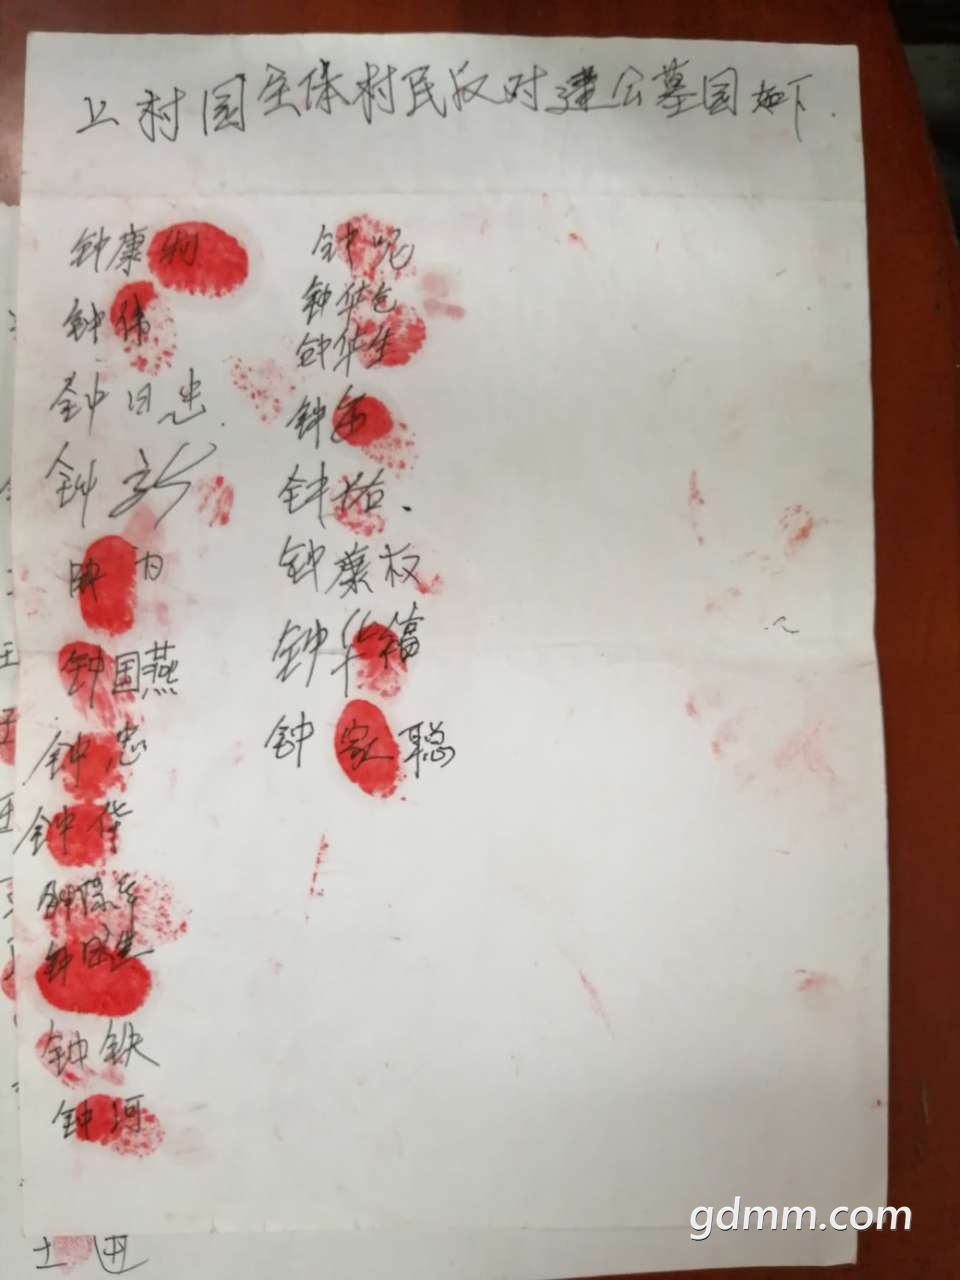 上村园全体村民反对建公墓园如下.
钟康利
钟伟
钟日忠
钟新
钟国燕
钟忠
钟华
钟国生
钟铁
钟河
钟呢
钟华包
钟华生
钟
钟
钟康权
钟华福
钟家聪
gdmm.com